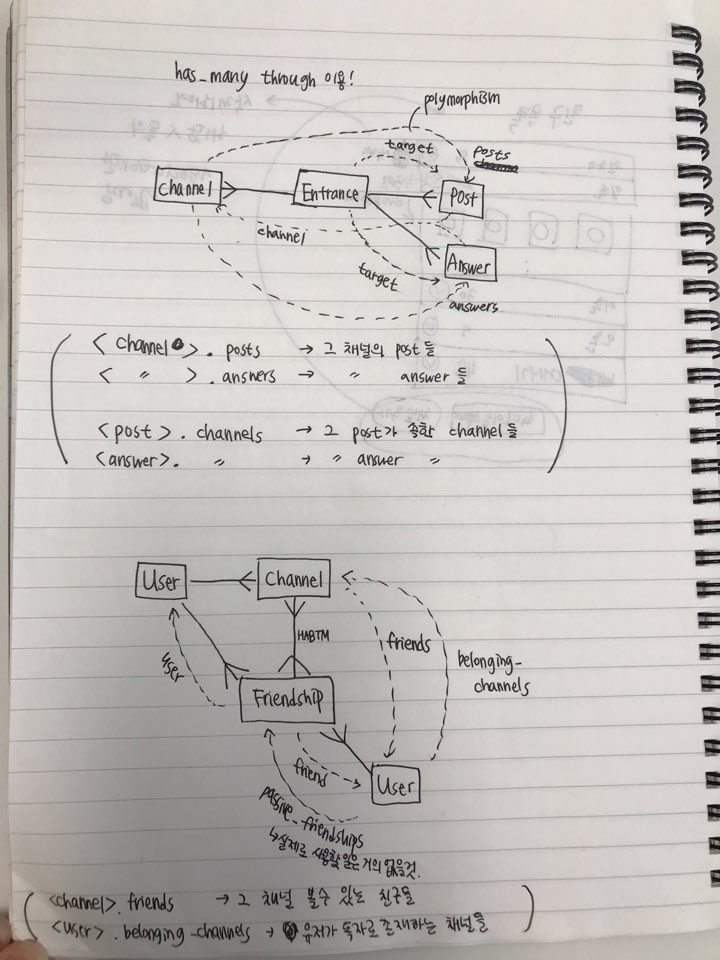 has_many through 이용!
polymorphism
target
posts
Channel
Entrance
Post
channel
target
Answer
answers
<channel>. posts → 그 채널의 post 들
< 〃 >. answers → 〃 answer 들
<post>. channels → 그 post가 속한 channel들
<answer>. 〃 → 〃 answer 〃
User
Channel
HABTM
user
friends
belonging_
channels
Friendship
friend
User
passive_friendships
↳실제로 사용할 일은 거의 없을것.
<channel>.friends → 그 채널 볼수 있는 친구들
<user>.belonging_channels → 유저가 독자로 존재하는 채널들